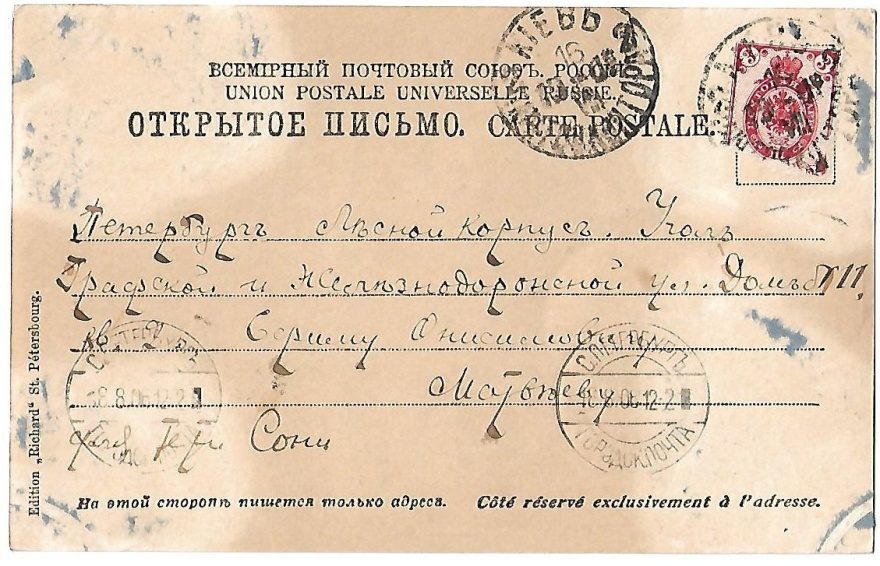 ВСЕМІРНЫЙ ПОЧТОВЫЙ СОЮЗЪ. РОССІЯ.
UNION POSTALE UNIVERSELLE RUSSIE.
ОТКРЫТОЕ ПИСЬМО. CARTE POSTALE.
КІЕВЪ
16
3
3
Петербургъ Лѣсной Корпусъ. Уголъ
Графской и Желѣзнодорожной ул. Домъ № 11,
кв 2 Сергію Онисимовичу
Матвѣеву
для тети Сони
С.ПЕТЕРБУРГЪ
18.8.06.12-2
С.ПЕТЕРБУРГЪ
18.8.06.12-2
ГОРОДСК.ПОЧТА
На этой сторонѣ пишется только адресъ. Côté réservé exclusivement à l'adresse.
Edition „Richard“ St. Pétersbourg.